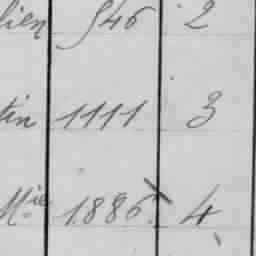 lien 546 2
tin 1111 3
Mie 1886 4